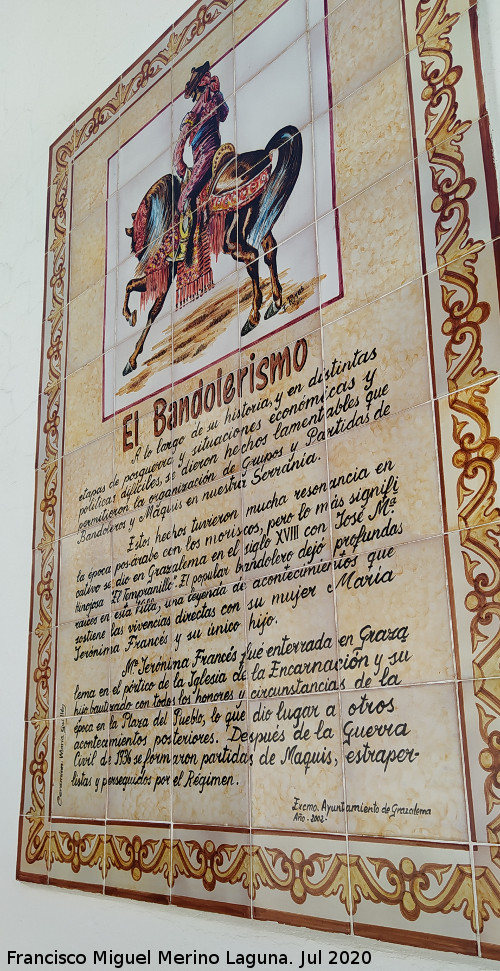 El Bandolerismo
A lo largo de su historia, y en distintas
etapas de posguerra y situaciones económicas y
políticas difíciles, se dieron hechos lamentables que
permitieron la organización de Grupos y Partidas de
Bandoleros y Maquis en nuestra Serranía.
Estos hechos tuvieron mucha resonancia en
la época posárabe con los moriscos, pero lo más signifi
cativo se dio en Grazalema en el siglo XVIII con José Mª
hinojosa "El Tempranillo". El popular bandolero dejó profundas
raíces en esta Villa, una leyenda de acontecimientos que
sostiene las vivencias directas con su mujer María
Jerónima Francés y su único hijo.
Mª Jerónima Francés fué enterrada en Graza
lema en el pórtico de la Iglesia de la Encarnación y su
hijo bautizado con todos los honores y circunstancias de la
época en la Plaza del Pueblo, lo que dio lugar a otros
aconteamientos posteriores. Después de la Guerra
Civil de 1936 se formaron partidas de Maquis, estraper-
listas y perseguidos por el Régimen.
Excmo. Ayuntamiento de Grazalema
Año - 2002 -
Francisco Miguel Merino Laguna. Jul 2020